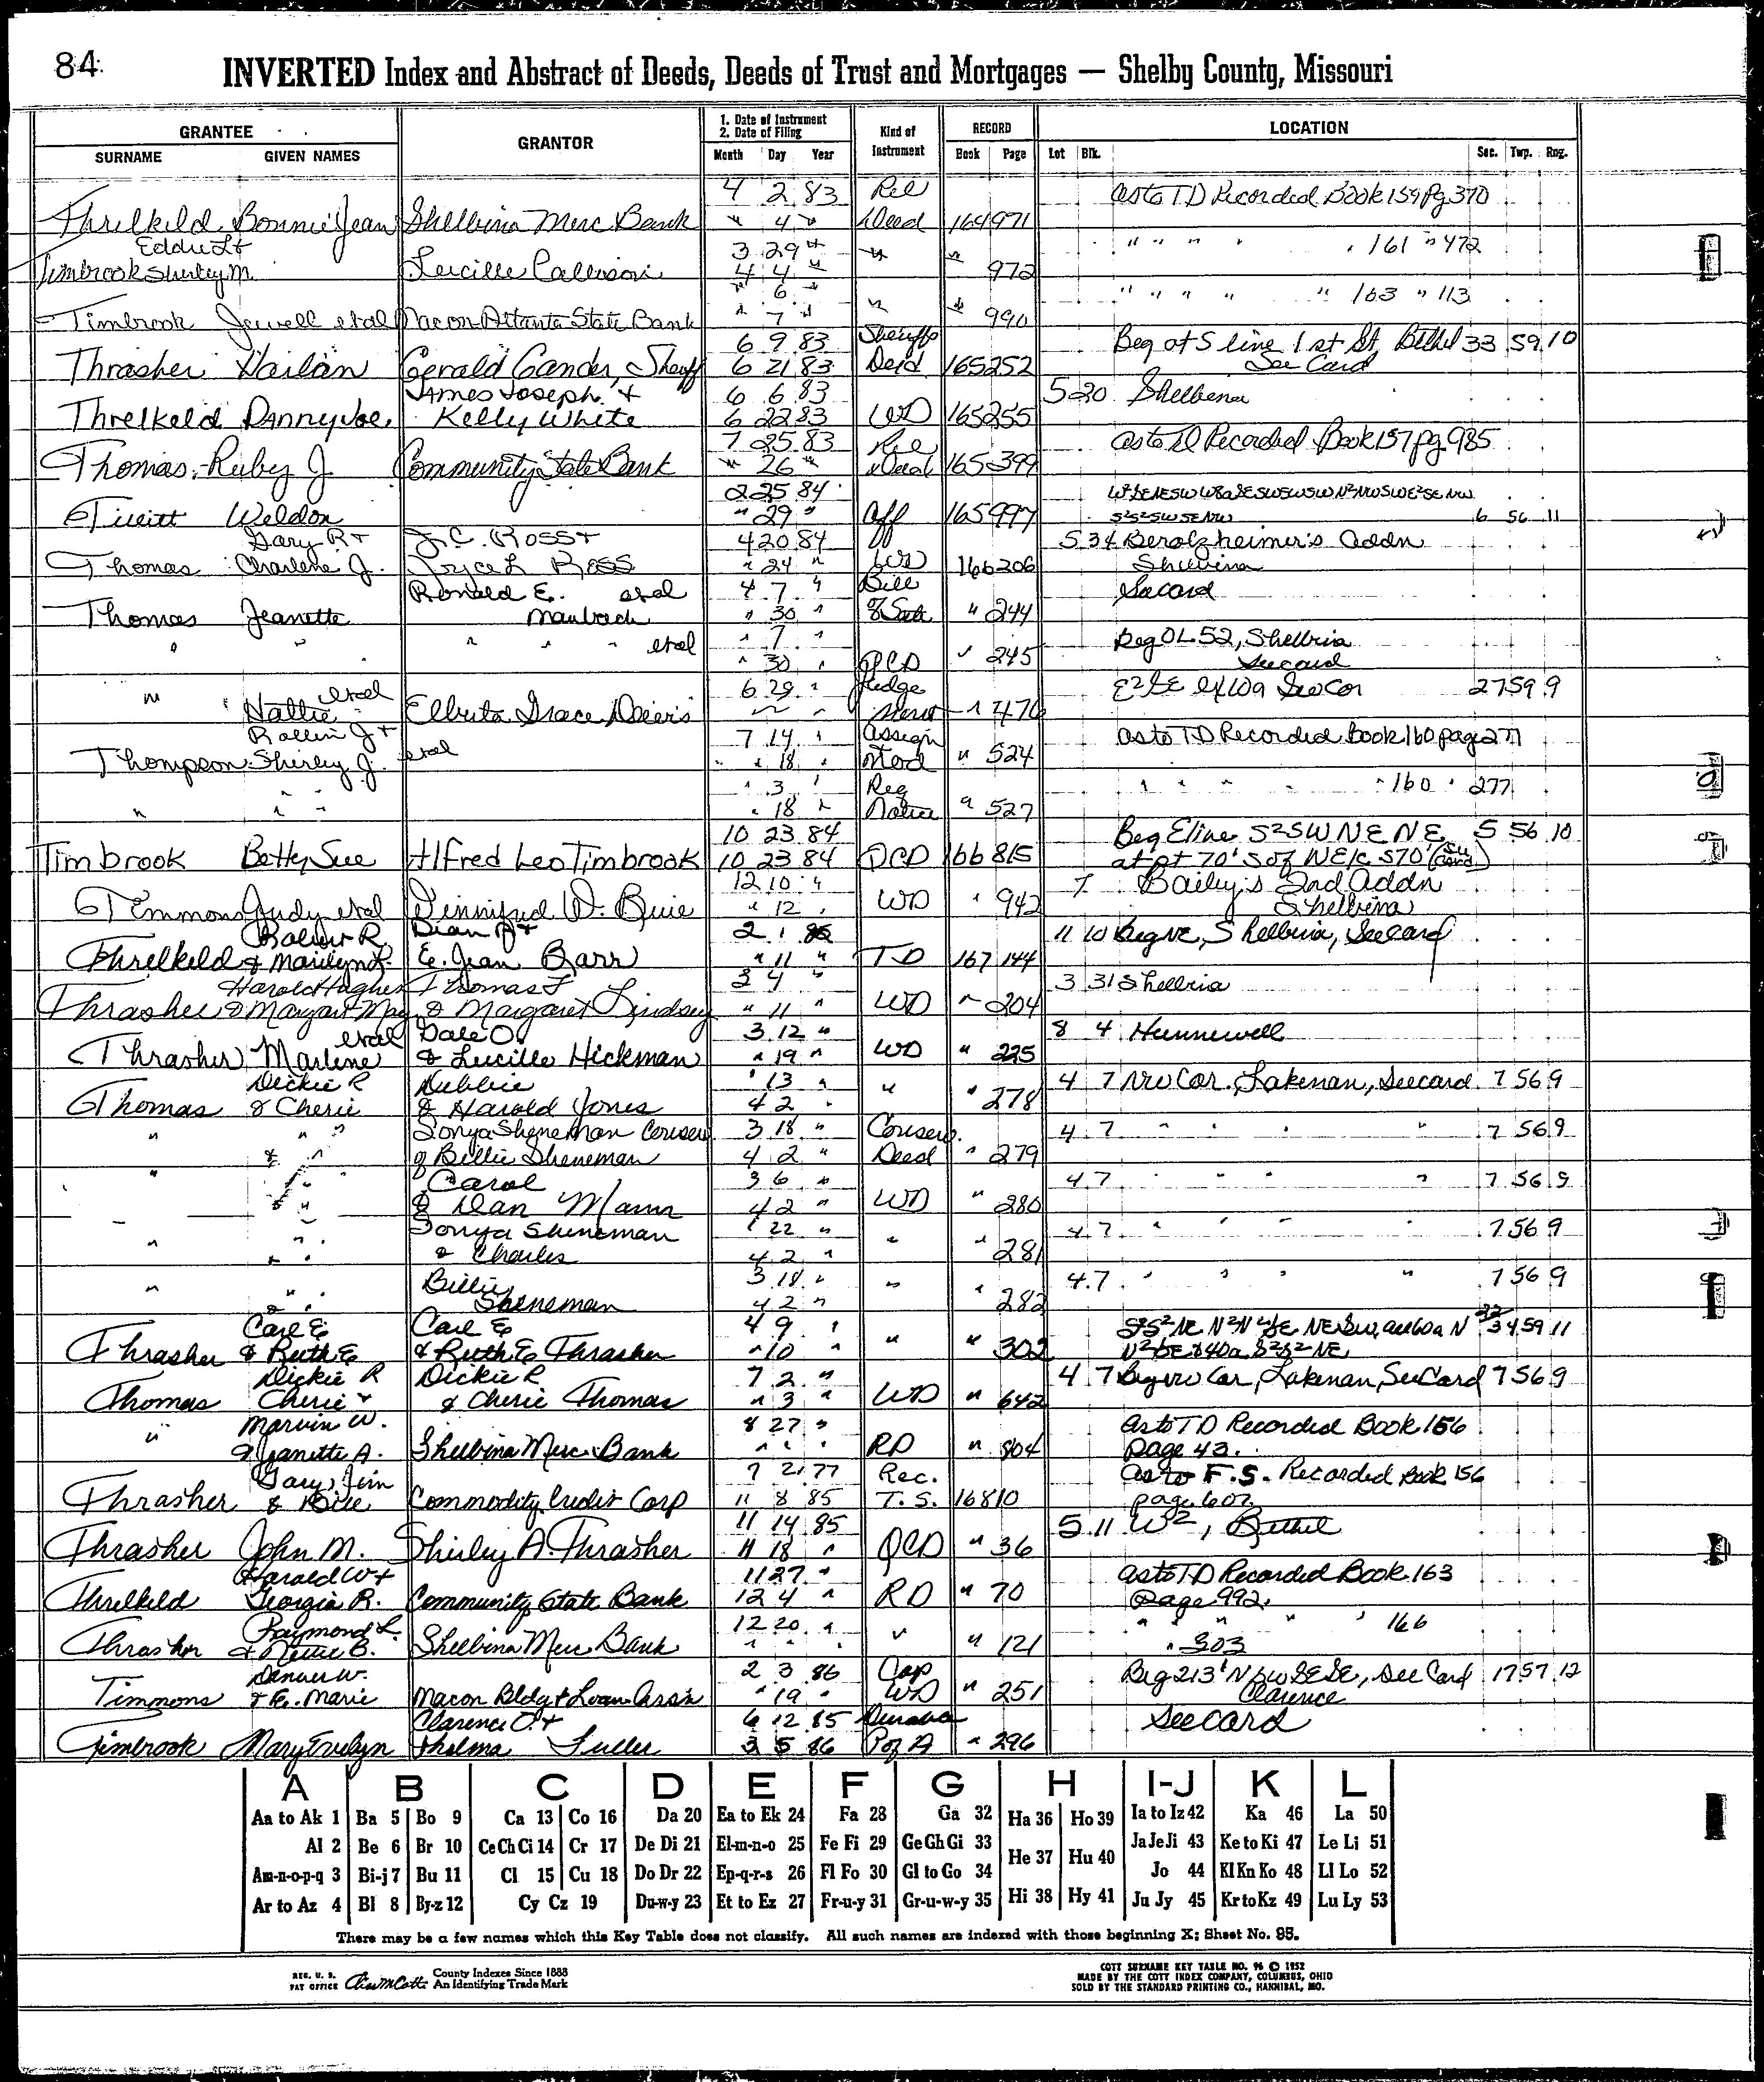 84
INVERTED Index and Abstract of Deeds, Deeds of Trust and Mortgages — Shelby County, Missouri
GRANTEE GRANTOR 1. Date of Instrument 2. Date of Filing Kind of Instrument RECORD LOCATION
SURNAME GIVEN NAMES Month Day Year Book Page Lot Blk. Sec. Twp. Rng.
4 2 83 Rel as to T.D Recorded Book 159 pg 370
Threlkeld Bonnie Jean Shelbina Merc Bank " 4 " Deed 164 971
Eddie L + 3 29 " " " " " " 161 " 472
Timbrook Shirley M. Lucille Callison 4 4 " " 972
" 6 " " " " " " 163 " 113
Timbrook Jewell etal Macon Atlanta State Bank " 7 " " " 990
6 9 83 Sheriffs Beg at S line 1st St. Bethel 33 59 10
Thrasher Harlan Gerald Gander, Sheriff 6 21 83 Deed 165 252 See Card
James Joseph + 6 6 83 5 20 Shelbina
Threlkeld Danny Joe Kelly White 6 22 83 WD 165 255
7 25 83 Rel as to TD Recorded Book 157 pg 985
Thomas, Ruby J Community State Bank " 26 " Deed 165 399
2 25 84
Weldon " 29 " Aff 165 997 S²S²SW SE NW 6 56 11
Gary R + J.C. Ross + 4 20 84 5 34 Berolzheimer's Addn
Thomas Charlene J. Joyce L Ross " 24 " WD 166 206 Shelbina
Ronald E. etal 4 7 " Bill See card
Thomas Jeanette Maubach " 30 " & Sale " 244
" " " " " etal " 7 " Beg OL 52, Shelbina
" 30 " QCD " 245 See card
" etal 6 29 " E²SE ex W9 SW Cor 27 59 9
Hattie Elberta Grace Deer's " " " 470
Rollin J + 7 14 " Assign as to T.D Recorded Book 160 page 277
Thompson Shirley J. etal " 18 " " 524
" 3 " Req " " " " " 160 " 277
" " " " 18 " Notice " 527
10 23 84 Beg E line S²SW NE NE 5 56 10
Timbrook Betty Sue Alfred Leo Timbrook 10 23 84 QCD 166 815 at pt 70' S of NE/c S70' (See Card)
12 10 " 7 Bailey's 2nd Addn
Timmons Judy etal Winnifred D. Buie " 12 " WD " 942 Shelbina
Robert R Dean A + 2 1 85 11 10 Beg NE, Shelbina, See Card
Threlkeld & Marilyn L. E. Jean Barr " 11 " TD 167 144
Harold Hughes Thomas F 3 4 " 3 31 Shelbina
Thrasher & Margaret May & Margaret Lindsey " 11 " WD " 204
etal Dale O. 3 12 " 8 4 Hunnewell
Thrasher Marlene & Lucille Hickman " 19 " WD " 225
Dickie R Debbie " 13 " " 4 7 NW Cor. Lakenan, See card 7 56 9
Thomas & Cherie & Harold Jones 4 2 " " 278
" " " Sonya Sheneman Conserv 3 18 " Conserv. 4 7 " " " " 7 56 9
" & " of Billie Sheneman 4 2 " Deed " 279
Carol 3 6 " 4 7 " " " 7 56 9
& " & Dan Mann 4 2 " WD " 280
Sonya Sheneman " 22 " 4 7 " " " " 7 56 9
" " & Charles 4 2 " " " 281
Billie 3 18 " " 4 7 " " " " 7 56 9
" & " Sheneman 4 2 " " 282
Carl E Carl E 4 9 " 34 59 11
Thrasher & Ruth E & Ruth E Thrasher " 10 " " " 302 N²SE & 40a S²S² NE
Dickie R Dickie R 7 2 " 4 7 Beg NW Cor, Lakenan, See Card 7 56 9
Thomas Cherie + & Cherie Thomas " 3 " WD " 642
" Marvin W. 8 27 " as to TD Recorded Book 156
& Jeanette A. Shelbina Merc. Bank " " " RD " 804 page 43.
Gary, Jim 7 21 77 Rec. as to F.S. Recorded Book 156
Thrasher & Bill Commodity Credit Corp 11 8 85 T.S. 168 10 page 607
11 14 85 5 11 W², Bethel
Thrasher John M. Shirley A. Thrasher 11 18 " QCD " 36
Harold W + 11 27 " as to TD Recorded Book 163
Threlkeld Georgia R. Community State Bank 12 4 " RD " 70 page 992.
Raymond L. 12 20 " " " " " " 166
Thrasher & Nettie B. Shelbina Merc Bank " " " " " 121 " 303
Denver W. 2 3 86 Cap Beg 213' N SW SE SE, See Card 17 57 12
Timmons + E. Marie Macon Bldg + Loan Assn " 19 " WD " 251 Clarence
Clarence O. + 6 12 85 Durable See card
Timbrook Mary Evelyn Thelma Fuller 3 5 86 P of A " 296
A B C D E F G H I-J K L
Aa to Ak 1 Ba 5 Bo 9 Ca 13 Co 16 Da 20 Ea to Ek 24 Fa 28 Ga 32 Ha 36 Ho 39 Ia to Iz 42 Ka 46 La 50
Al 2 Be 6 Br 10 Ce Ch Ci 14 Cr 17 De Di 21 El-m-n-o 25 Fe Fi 29 Ge Gh Gi 33 He 37 Hu 40 Ja Je Ji 43 Ke to Ki 47 Le Li 51
Am-n-o-p-q 3 Bi-j 7 Bu 11 Cl 15 Cu 18 Do Dr 22 Ep-q-r-s 26 Fl Fo 30 Gl to Go 34 Hi 38 Hy 41 Jo 44 Kl Kn Ko 48 Ll Lo 52
Ar to Az 4 Bl 8 By-z 12 Cy Cz 19 Du-w-y 23 Et to Ez 27 Fr-u-y 31 Gr-u-w-y 35 Ju Jy 45 Kr to Kz 49 Lu Ly 53
There may be a few names which this Key Table does not classify. All such names are indexed with those beginning X; Sheet No. 95.
REG. U. S. PAT OFFICE County Indexes Since 1888 An Identifying Trade Mark
COTT SURNAME KEY TABLE NO. 96 © 1952
MADE BY THE COTT INDEX COMPANY, COLUMBUS, OHIO
SOLD BY THE STANDARD PRINTING CO., HANNIBAL, MO.